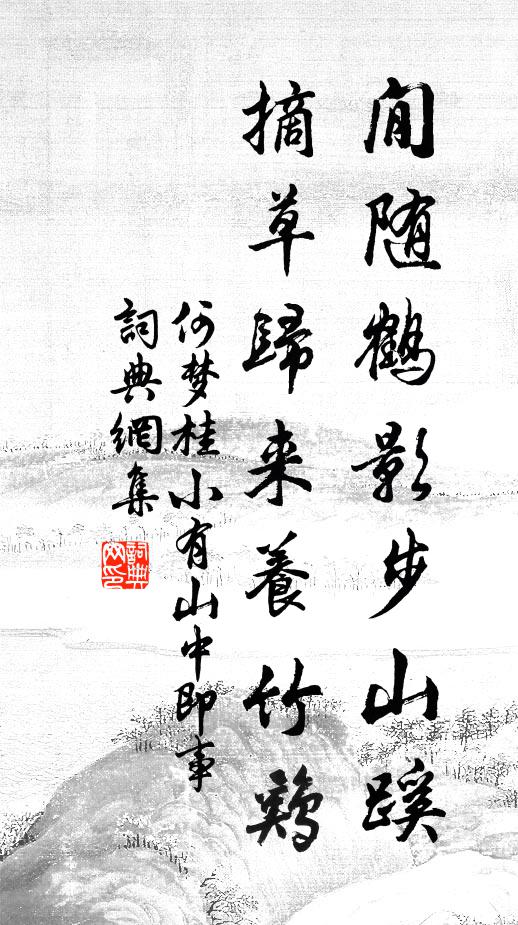 閒随鶴影步山蹊
摘草歸来養竹鷄
何梦桂小有山中即事
詞典網集
詞典
网印